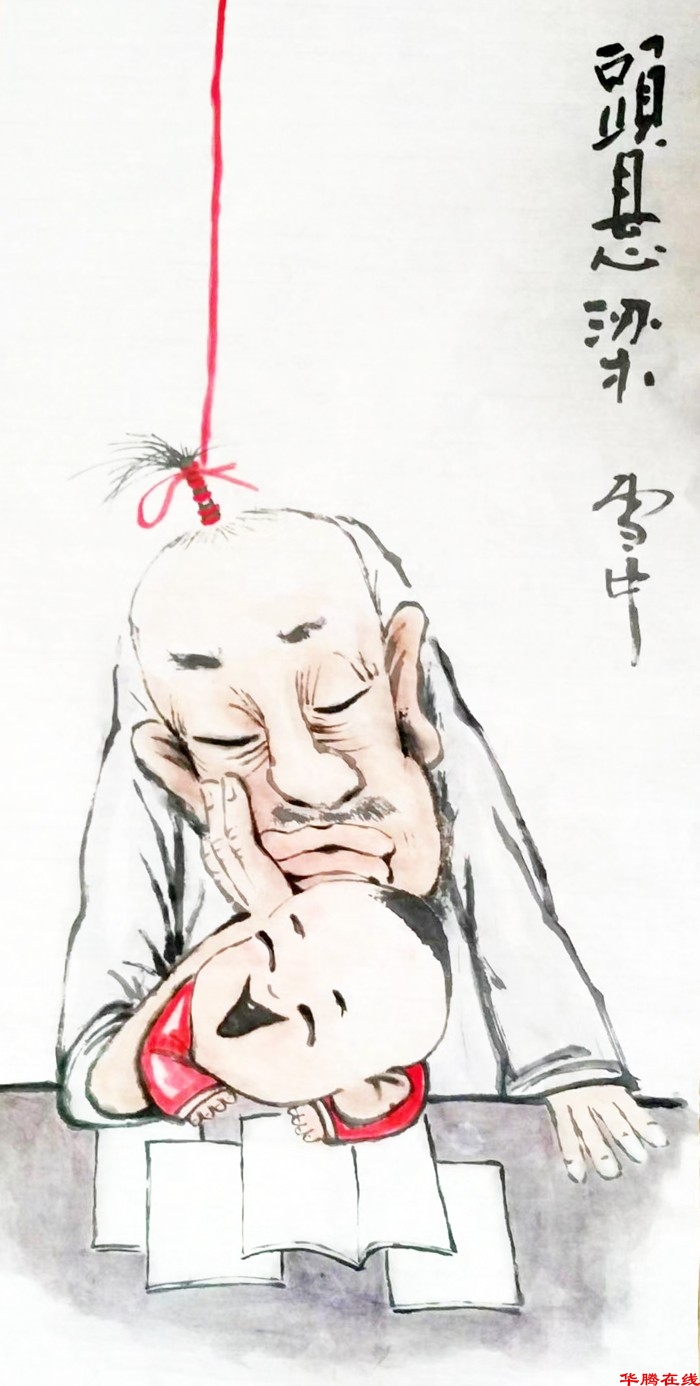 頭悬梁
雪中
华腾在线